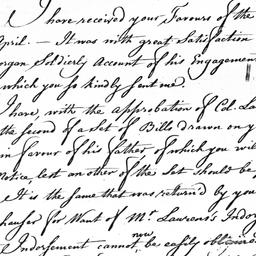 I have received your Favours of the
April. — It was with great Satisfaction
organ Soldierly Account of his Engagemen
which you so kindly sent me.
I have, with the approbation of Col. La
the second of a Set of Bills drawn on y
in favour of his father, of which you wil
Notice, lest another of the Set should be p
It is the same that was return'd by you
chanser for Want of Mr. Lawrens's Indor
Indorsement cannot now be easily obtained